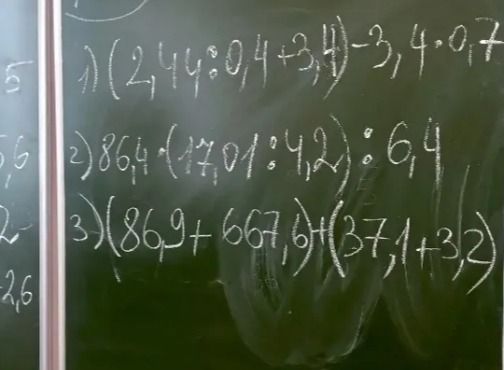 5
5,6
2-
-2,6
1) (2,44:0,4+3,4)-3,4·0,7
2) 86,4·(17,01:4,2):6,4
3) (86,9+667,6)+(37,1+3,2)